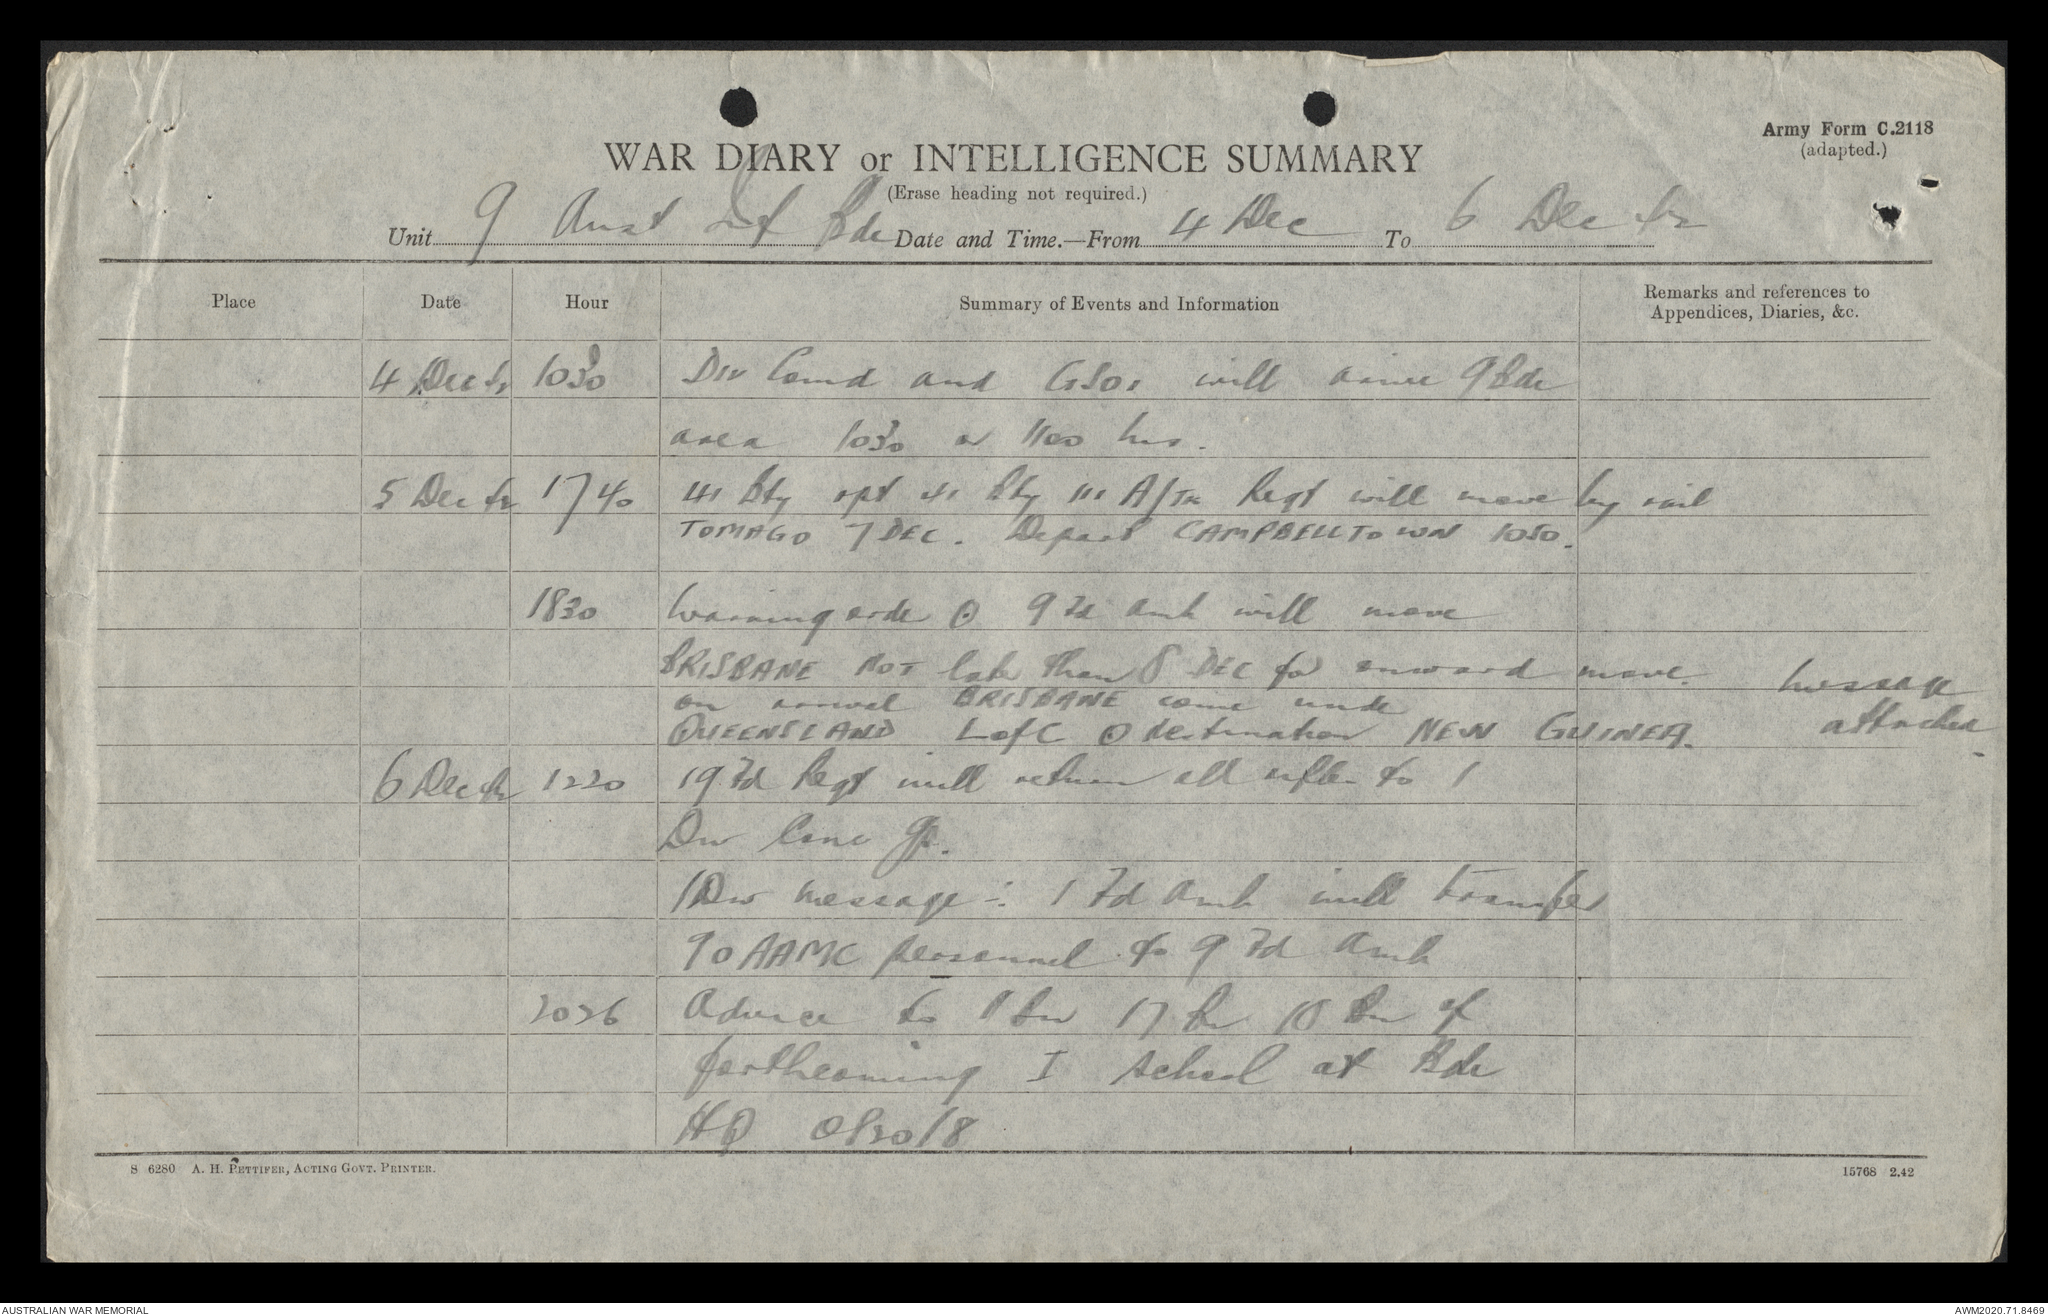 Army Form C.2118
(adapted.)
WAR DIARY or INTELLIGENCE SUMMARY
(Erase heading not required.)
Unit 9 Aust Inf Bde Date and Time.—From 4 Dec To 6 Dec 42
Place Date Hour Summary of Events and Information Remarks and references to Appendices, Diaries, &c.
4 Dec 42 1030 Div Comd and GSO1 will arrive 9 Bde
area 1030 or 1100 hrs.
5 Dec 42 1740 41 Bty 111 A/Tk Regt will move by rail
TOMAGO 7 DEC. Depart CAMPBELLTOWN 1050.
1830 Warning order ⊙ 9 Fd Amb will move
BRISBANE NOT later than 8 DEC for onward move. Message
on arrival BRISBANE come under
QUEENSLAND L of C ⊙ destination NEW GUINEA. attached.
6 Dec 42 1220 19 Fd Regt will return all rifles to 1
Div Conc Gp.
1 Div message :- 1 Fd Amb will transfer
90 AAMC personnel to 9 Fd Amb
2026 Advice to Bn 17 Bn 18 Bn of
forthcoming I school at Bde
HQ
S 6280 A. H. PETTIFER, ACTING GOVT. PRINTER.
15768 2.42
AUSTRALIAN WAR MEMORIAL
AWM2020.71.8469